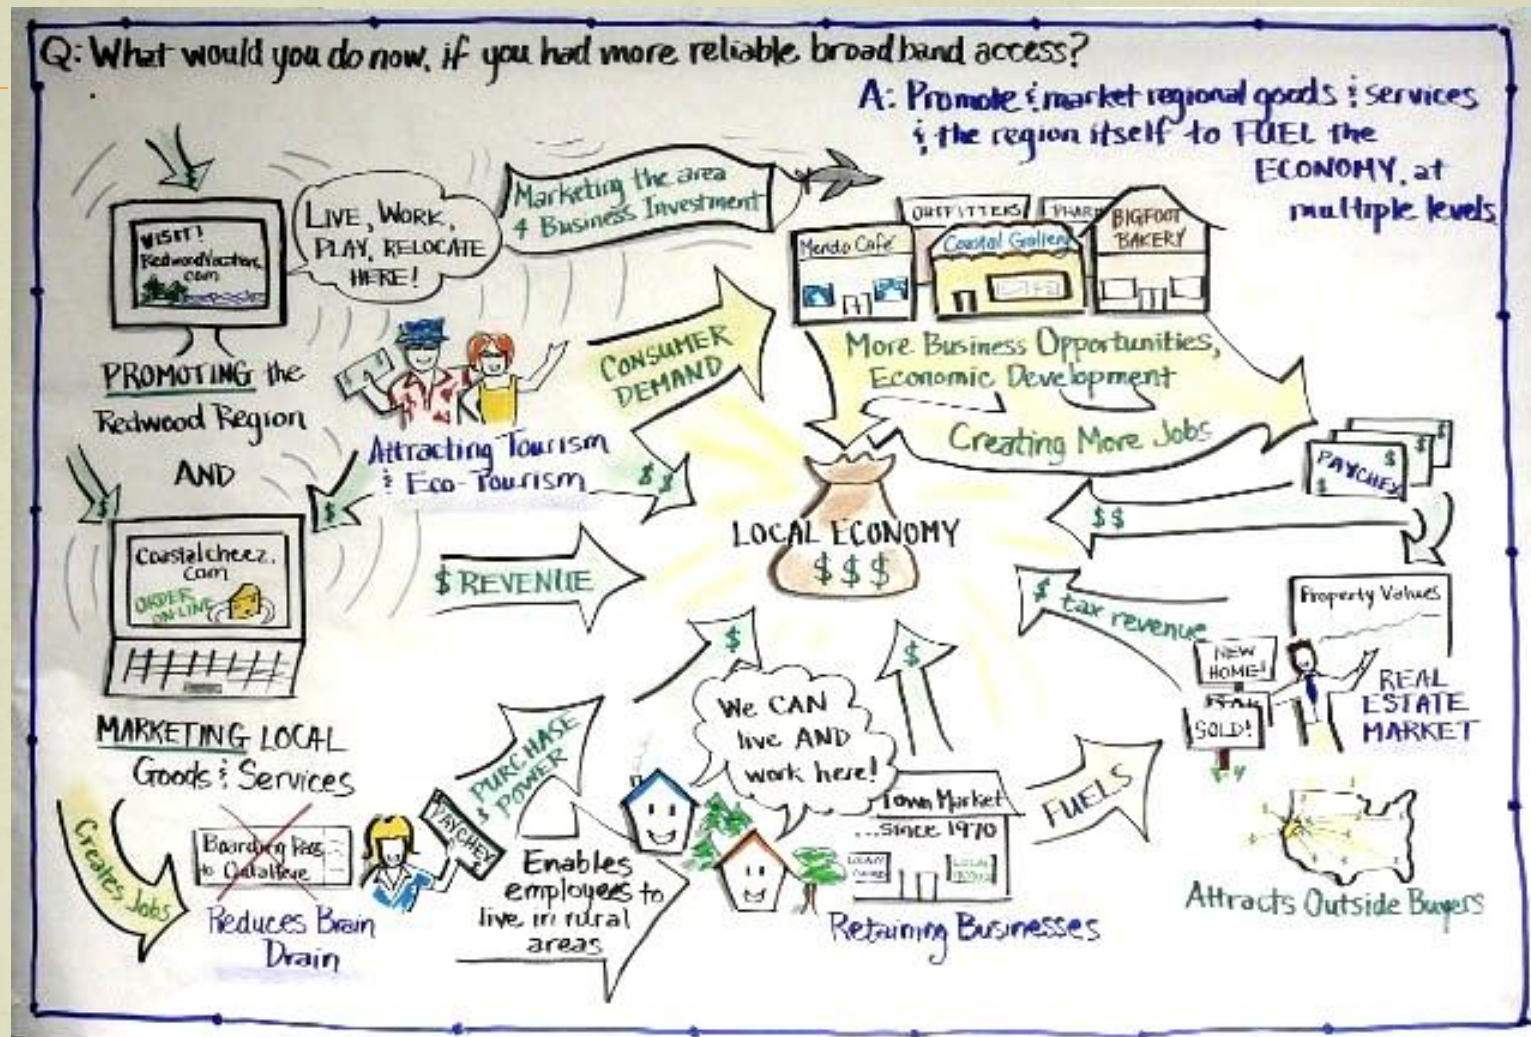 Q: What would you do now, if you had more reliable broadband access?
A: Promote & market regional goods & services
& the region itself to FUEL the
ECONOMY, at
multiple levels
VISIT!
RedwoodVacations.
com
LIVE, WORK,
PLAY, RELOCATE
HERE!
Marketing the area
4 Business Investment
OUTFITTERS
PHAR
Mendo Café
Coastal Gallery
BIGFOOT
BAKERY
PROMOTING the
Redwood Region
AND
Attracting Tourism
& Eco-Tourism
CONSUMER
DEMAND
More Business Opportunities,
Economic Development
Creating More Jobs
$
$$
PAYCHEX
$
$
$$
LOCAL ECONOMY
$$$
Coastalcheez.
com
ORDER
ON-LINE
$ REVENUE
$ tax revenue
Property Values
NEW
HOME!
SOLD!
REAL
ESTATE
MARKET
MARKETING LOCAL
Goods & Services
Creates Jobs
Boarding Pass
to
Reduces Brain
Drain
PAYCHEX
PURCHASE
POWER
$
$
Enables
employees to
live in rural
areas
We CAN
live AND
work here!
Town Market
...since 1970
Retaining Businesses
FUELS
Attracts Outside Buyers